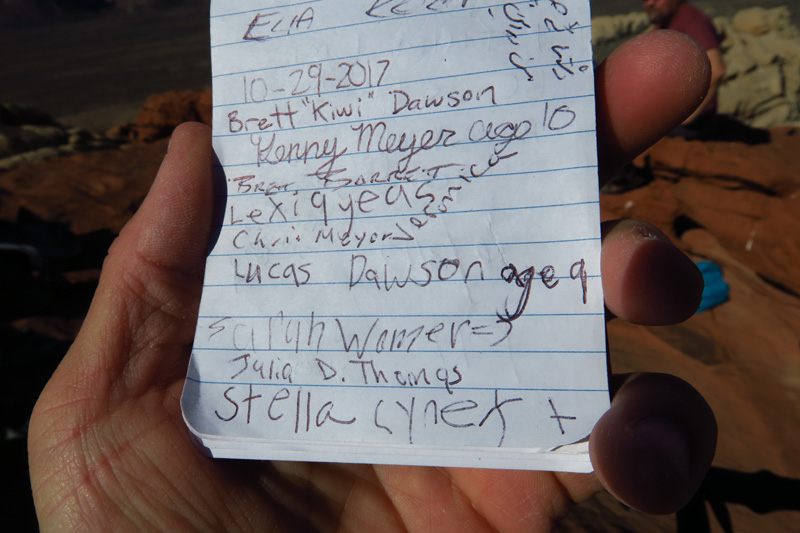 ELIA
10-29-2017
Brett "Kiwi" Dawson
Kenny Meyer age 10
Bret
Lexi 9 years
Chris Meyer
Lucas Dawson age 9
Sarah Womer =>
Julia D. Thomas
Stella